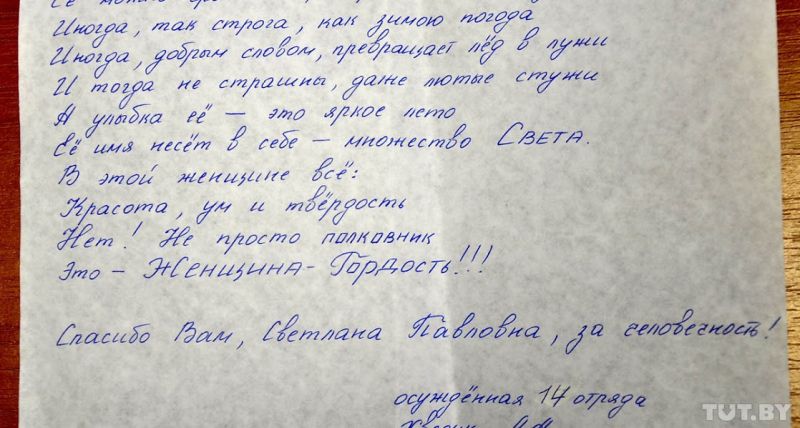 Иногда, так строга, как зимою погода
Иногда, добрым словом, превращает лёд в лужи
И тогда не страшны, даже лютые стужи
А улыбка её – это яркое лето
Её имя несёт в себе – множество СВЕТА.
В этой женщине всё:
Красота, ум и твёрдость
Нет! Не просто полковник
Это – ЖЕНЩИНА – ГОРДОСТЬ!!!
Спасибо Вам, Светлана Павловна, за человечность!
осуждённая 14 отряда
TUT.BY